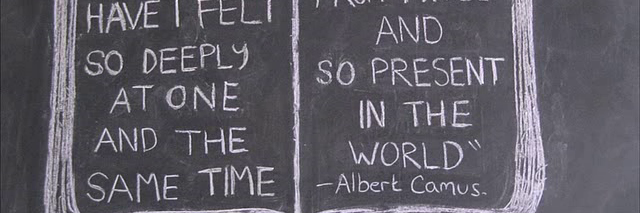 HAVE I FELT
SO DEEPLY
AT ONE
AND THE
SAME TIME
AND
SO PRESENT
IN THE
WORLD"
-Albert Camus.